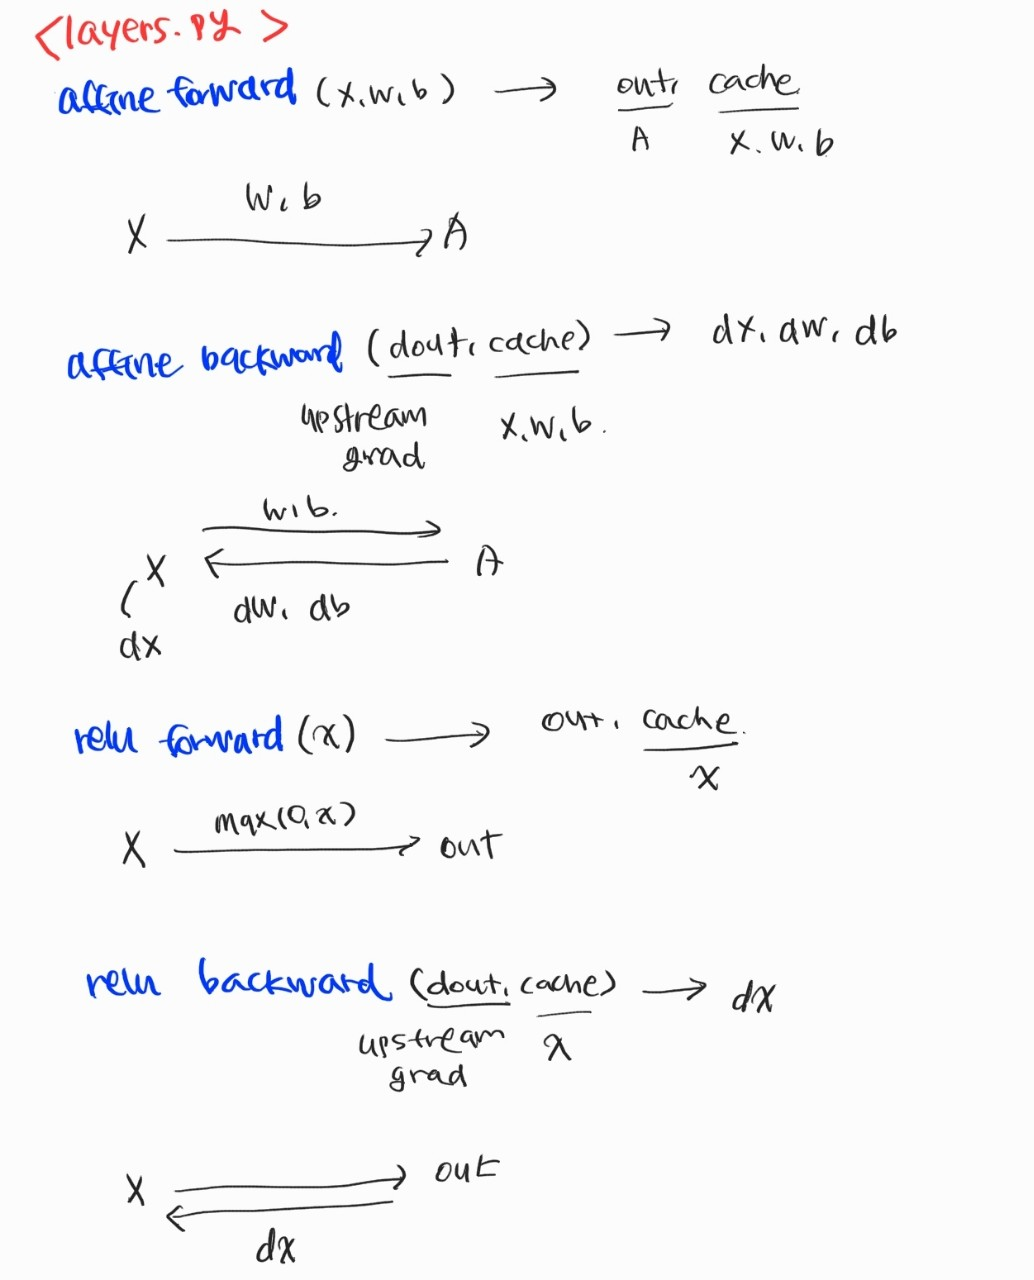 <layers.py>
affine forward (x, w, b) → out, cache
A x, w, b
w, b
X → A
affine backward (dout, cache) → dx, dw, db
upstream x, w, b.
grad
w, b.
X A
dw, db
dx
relu forward (x) → out, cache.
x
max(0,x)
X → out
relu backward (dout, cache) → dx
upstream x
grad
X out
dx